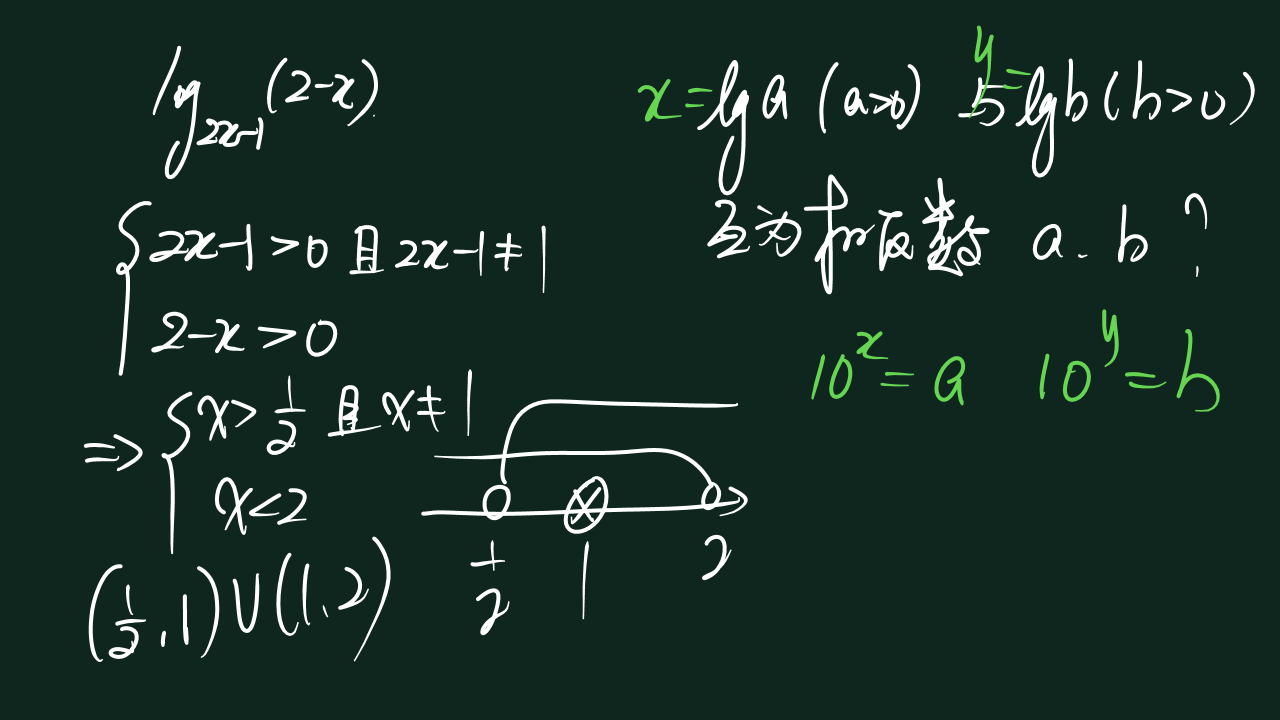 log₂ₓ₋₁(2-x)
{2x-1>0且2x-1≠1
2-x>0
⇒{x>1/2且x≠1
x<2
1/2 1 2
(1/2,1)∪(1,2)
x=lga(a>0) 与y=lgb(b>0)
互为相反数 a、b?
10ˣ=a 10ʸ=b